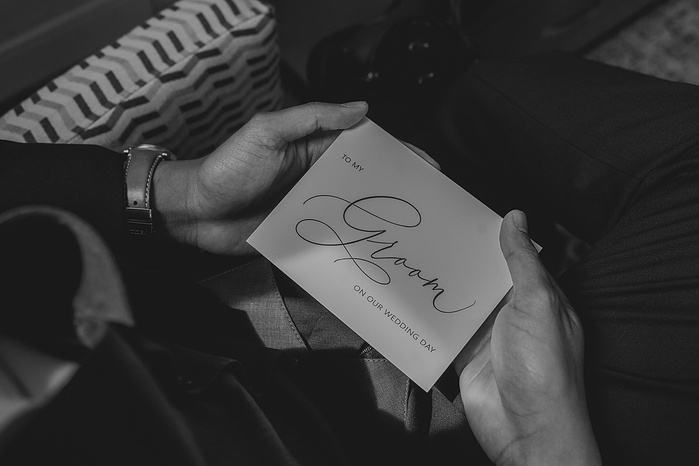 TO MY
Groom
ON OUR WEDDING DAY